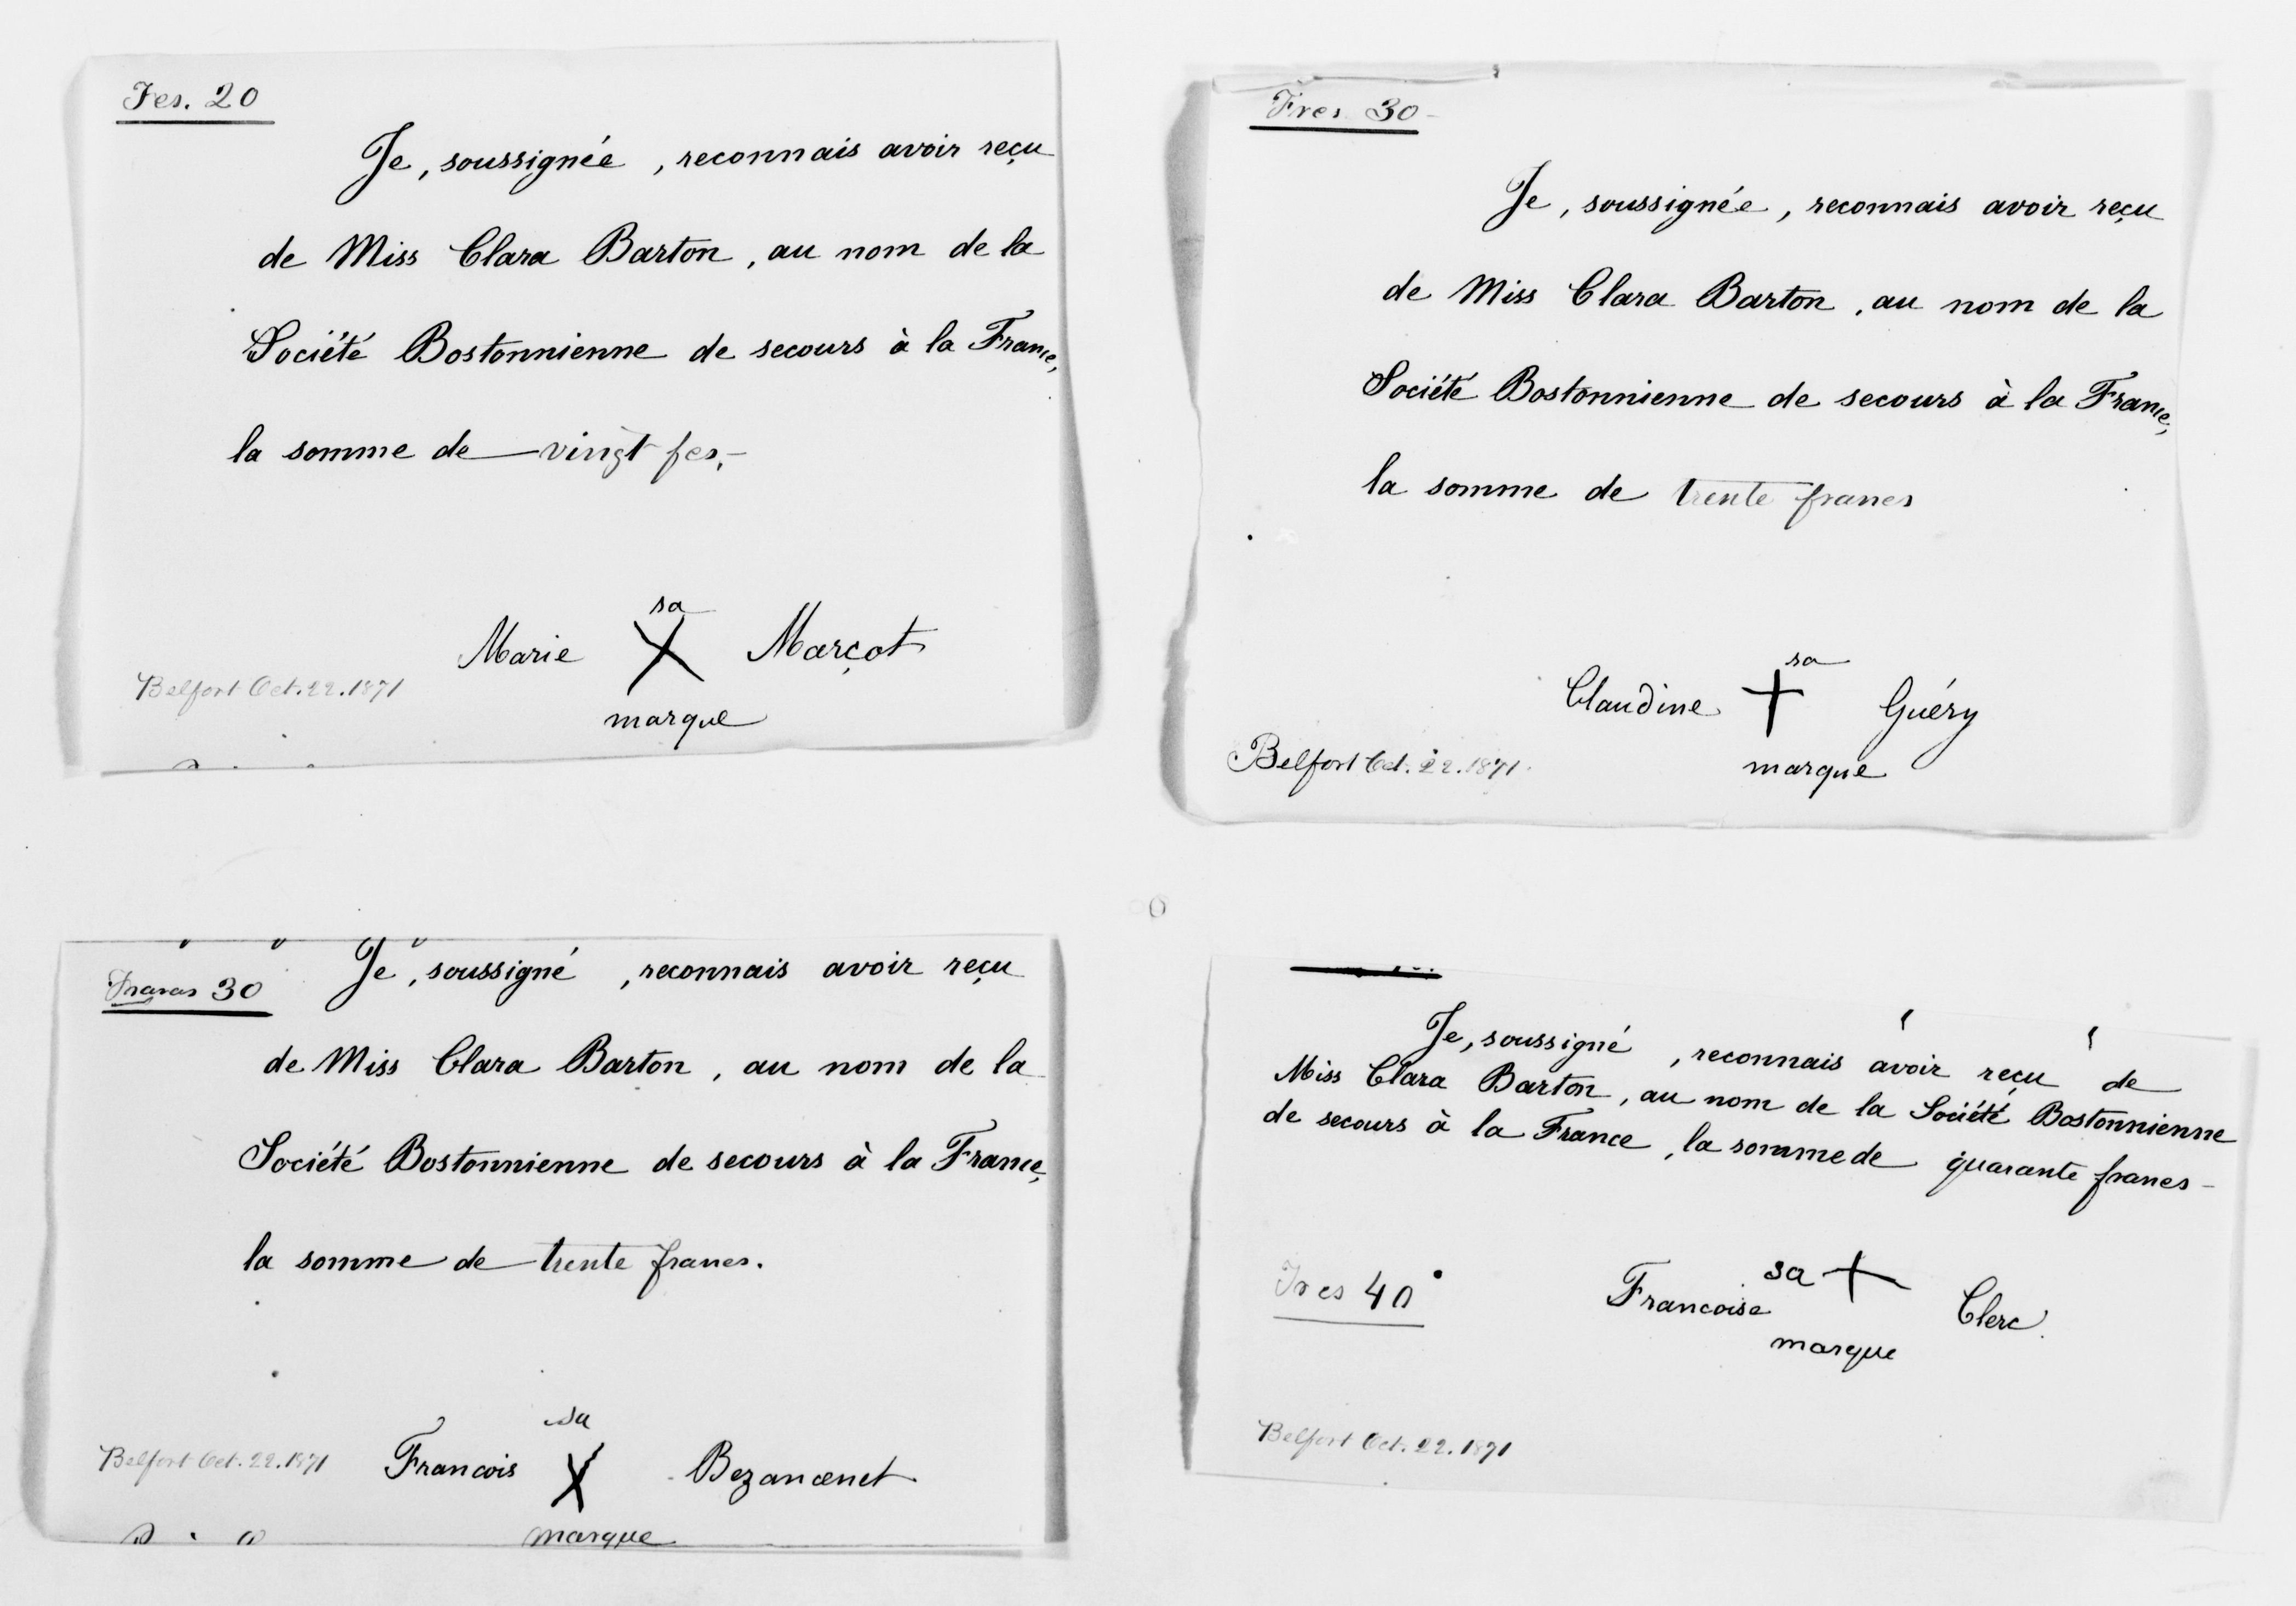 Fcs. 20
Je, soussignée, reconnais avoir reçu
de Miss Clara Barton, au nom de la
Société Bostonnienne de secours à la France,
la somme de vingt fcs.
sa
Marie X Marçot
marque
Belfort Oct. 22. 1871
Frcs 30
Je, soussignée, reconnais avoir reçu
de Miss Clara Barton, au nom de la
Société Bostonnienne de secours à la France,
la somme de trente francs
sa
Claudine + Guéry
marque
Belfort Oct. 22. 1871.
Je, soussigné, reconnais avoir reçu
Francs 30
de Miss Clara Barton, au nom de la
Société Bostonnienne de secours à la France,
la somme de trente francs.
sa
Francois X Bezancenet
marque
Belfort Oct. 22. 1871
Je, soussigné, reconnais avoir reçu de
Miss Clara Barton, au nom de la Société Bostonnienne
de secours à la France, la somme de quarante francs
Frcs 40
sa +
Francoise Clerc
marque
Belfort Oct. 22. 1871